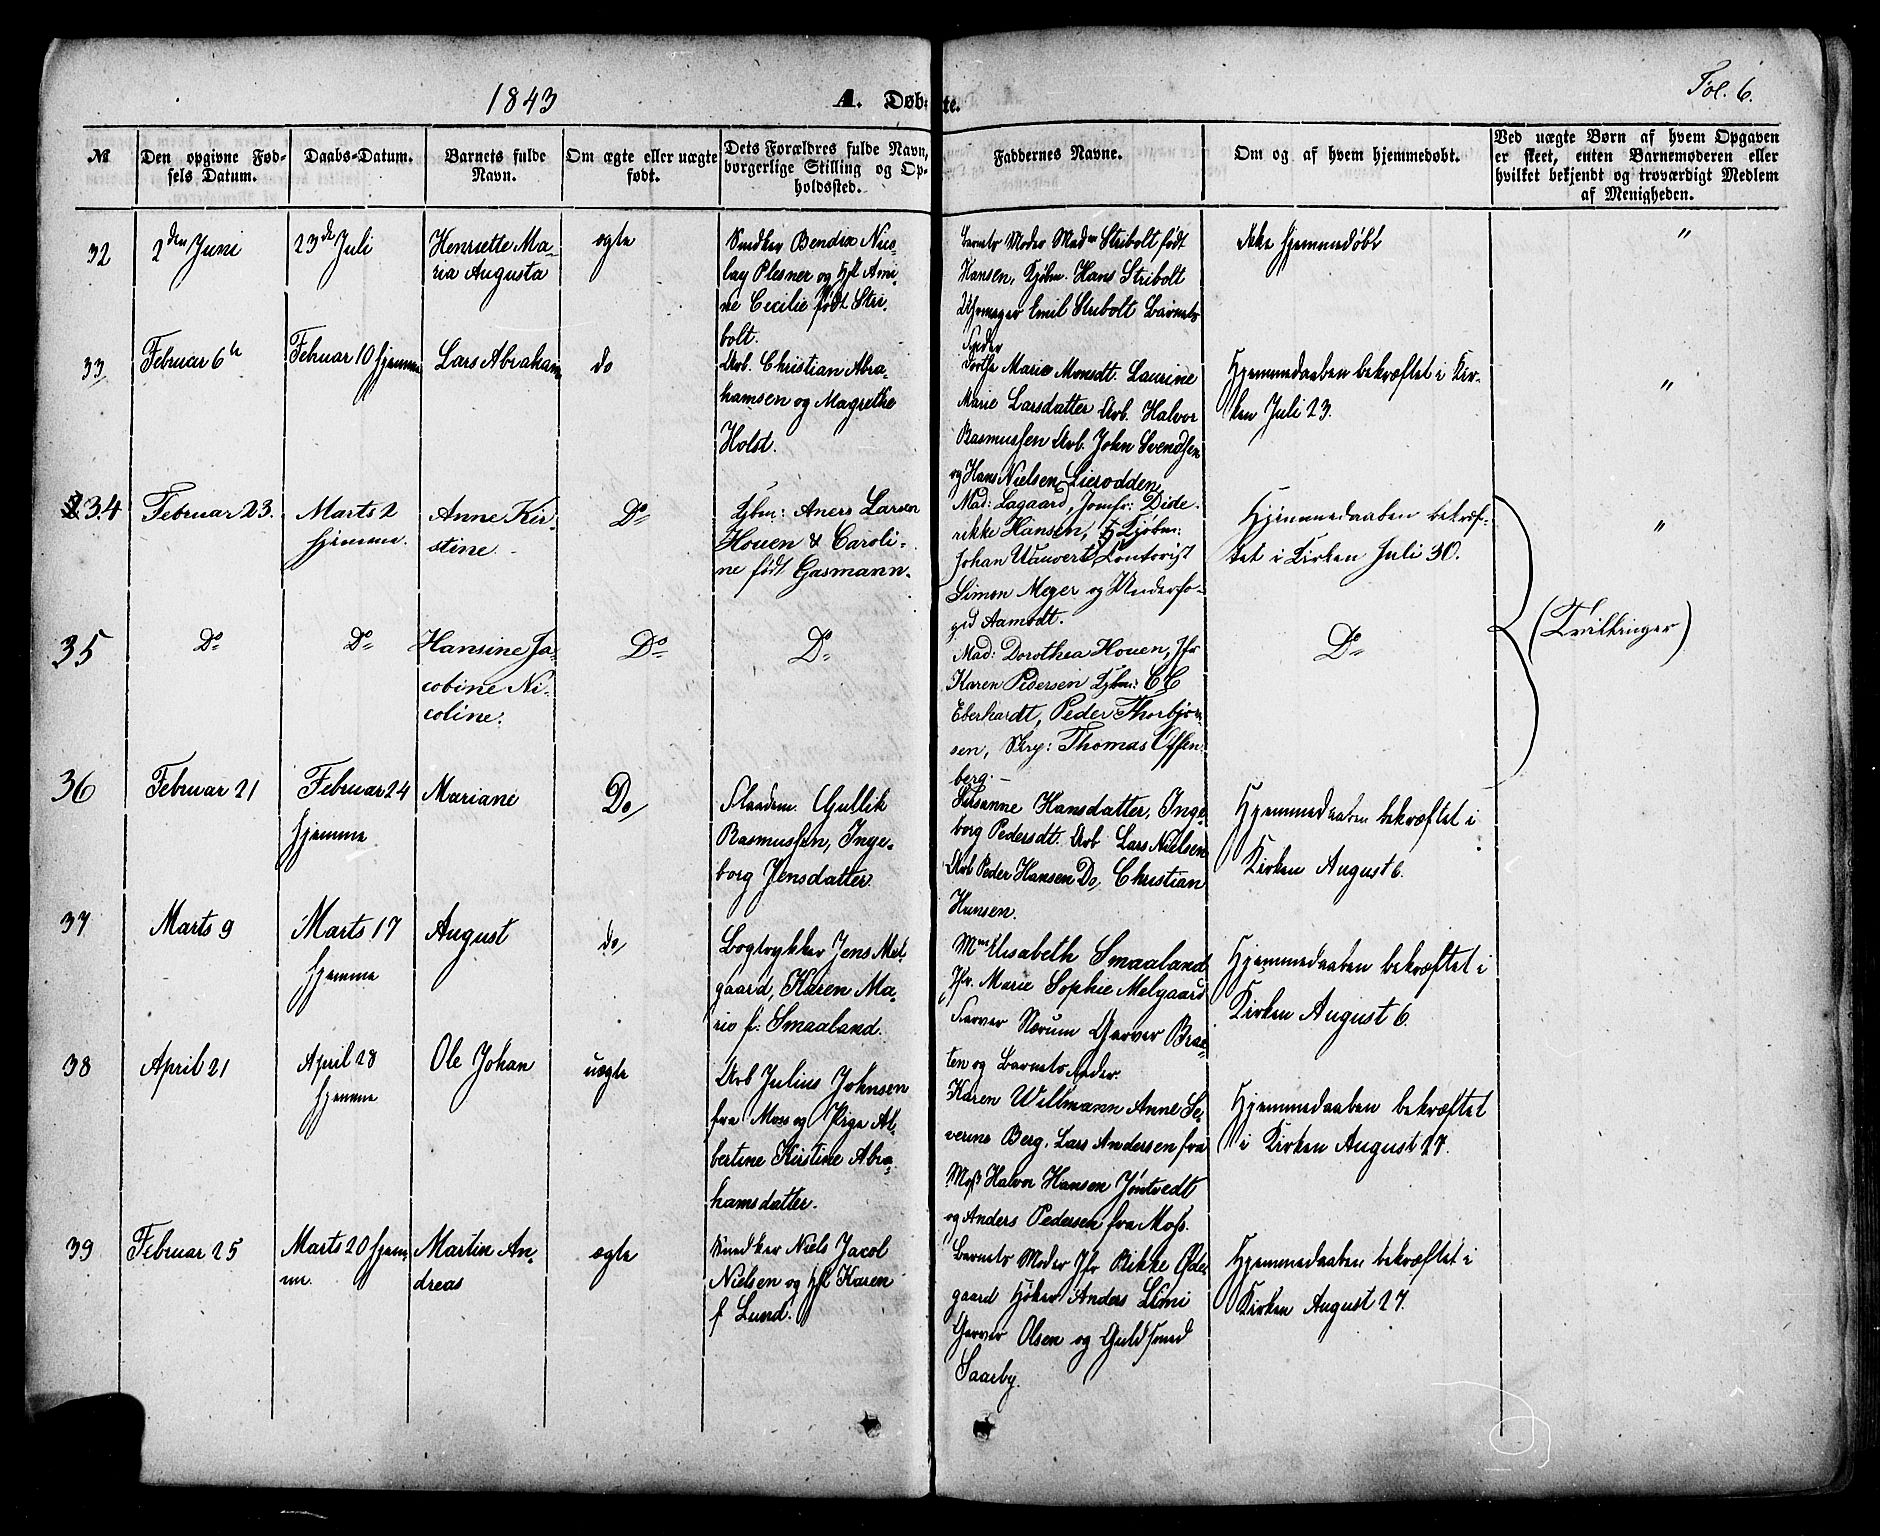 1843
A. Døbte.
Fol. 6.
№
Den opgivne Fød-
sels Datum.
Daabs-Datum.
Barnets fulde
Navn.
Om ægte eller uægte
født.
Dets Forældres fulde Navn,
borgerlige Stilling og Op-
holdssted.
Faddernes Navne.
Om og af hvem hjemmedøbt.
Ved uægte Børn af hvem Opgaven
er skeet, enten Barnemøderen eller
hvilket bekjendt og troværdigt Medlem
af Menigheden.
32
2den Juni
23de Juli
Henriette Ma-
ria Augusta
ægte
Snedker Bendix Nico-
lay Plesner og Hst Ami-
ne Cecilie født Stri-
bolt.
Barnets Moder Madm Stribolt født
Hansen, Kjøbm. Hans Stribolt
Uhrmager Emil Stribolt Barnets
Fader
Ikke hjemmedøbt
"
33
Februar 6te
Februar 10 hjemme
Lars Abraham
do
Arb. Christian Abra-
hamsen og Magrethe
Holst.
Dorthe Marie Monsdt. Laurine
Marie Larsdatter Arb. Halvor
Rasmussen Arb. John Svendsen
og Hans Nielsen Lierodden
Hjemmedaaben bekræftet i Kir-
ken Juli 23.
"
34
Februar 23.
Marts 2
hjemme.
Anne Kir-
stine
Do
Kjbm: Aners Larsen
Houen & Caroli-
ne født Gasmann.
Mad: Lagaard, Jomfr: Dide-
rikke Hansen, Kjøbm:
Johan Wauvert, Contorist
Simon Meyer og Underfo-
ged Aamodt.
Hjemmedaaben bekræf-
tet i Kirken Juli 30.
"
35
Do
Do
Hansine Ja-
cobine Ni-
coline.
Do
Do
Mad: Dorothea Houen, Jfr
Karen Pedersen Kjbm: CC
Eberhardt, Peder Thorbjørn-
sen, Skrp: Thomas Offen-
berg.
Do
(Tvillinger)
36
Februar 21
Februar 24
hjemme
Mariane
Do
Flaadem. Gullik
Rasmussen, Inge-
borg Jensdatter
Susanne Hansdatter, Inge-
borg Pedersdt. Arb Lars Nielsen
Arb Peder Hansen Do Christian
Hansen.
Hjemmedaaben bekræftet i
Kirken August 6.
37
Marts 9
Marts 17
hjemme
August
do
Bogtrykker Jens Mel-
gaard, Karen Ma-
rie f: Smaaland.
Mm Elisabeth Smaaland
Jfr. Marie Sophie Melgaard
Farver Nørum Garver Braa-
ten og Barnets Fader.
Hjemmedaaben bekræftet i
Kirken August 6.
38
April 21
April 28
hjemme
Ole Johan
uægte
Arb Julius Johnsen
fra Moss og Pige Al-
bertine Kirstine Abra-
hamsdatter.
Karen Willmann Anne Se-
verine Berg. Lars Andersen fra
Moss Halvor Hansen Jøntvedt
og Anders Pedersen fra Moss.
Hjemmedaaben bekræftet
i Kirken August 27.
39
Februar 25
Marts 20 hjem-
me.
Martin An-
dreas
ægte
Snedker Niels Jacob
Nielsen og Hst Karen
f Lund.
Barnets Moder Jfr Rikke Øde-
gaard Høker Anders
Garver Olsen og Guldsmed
Saarby.
Hjemmedaaben bekræftet i
Kirken August 27.